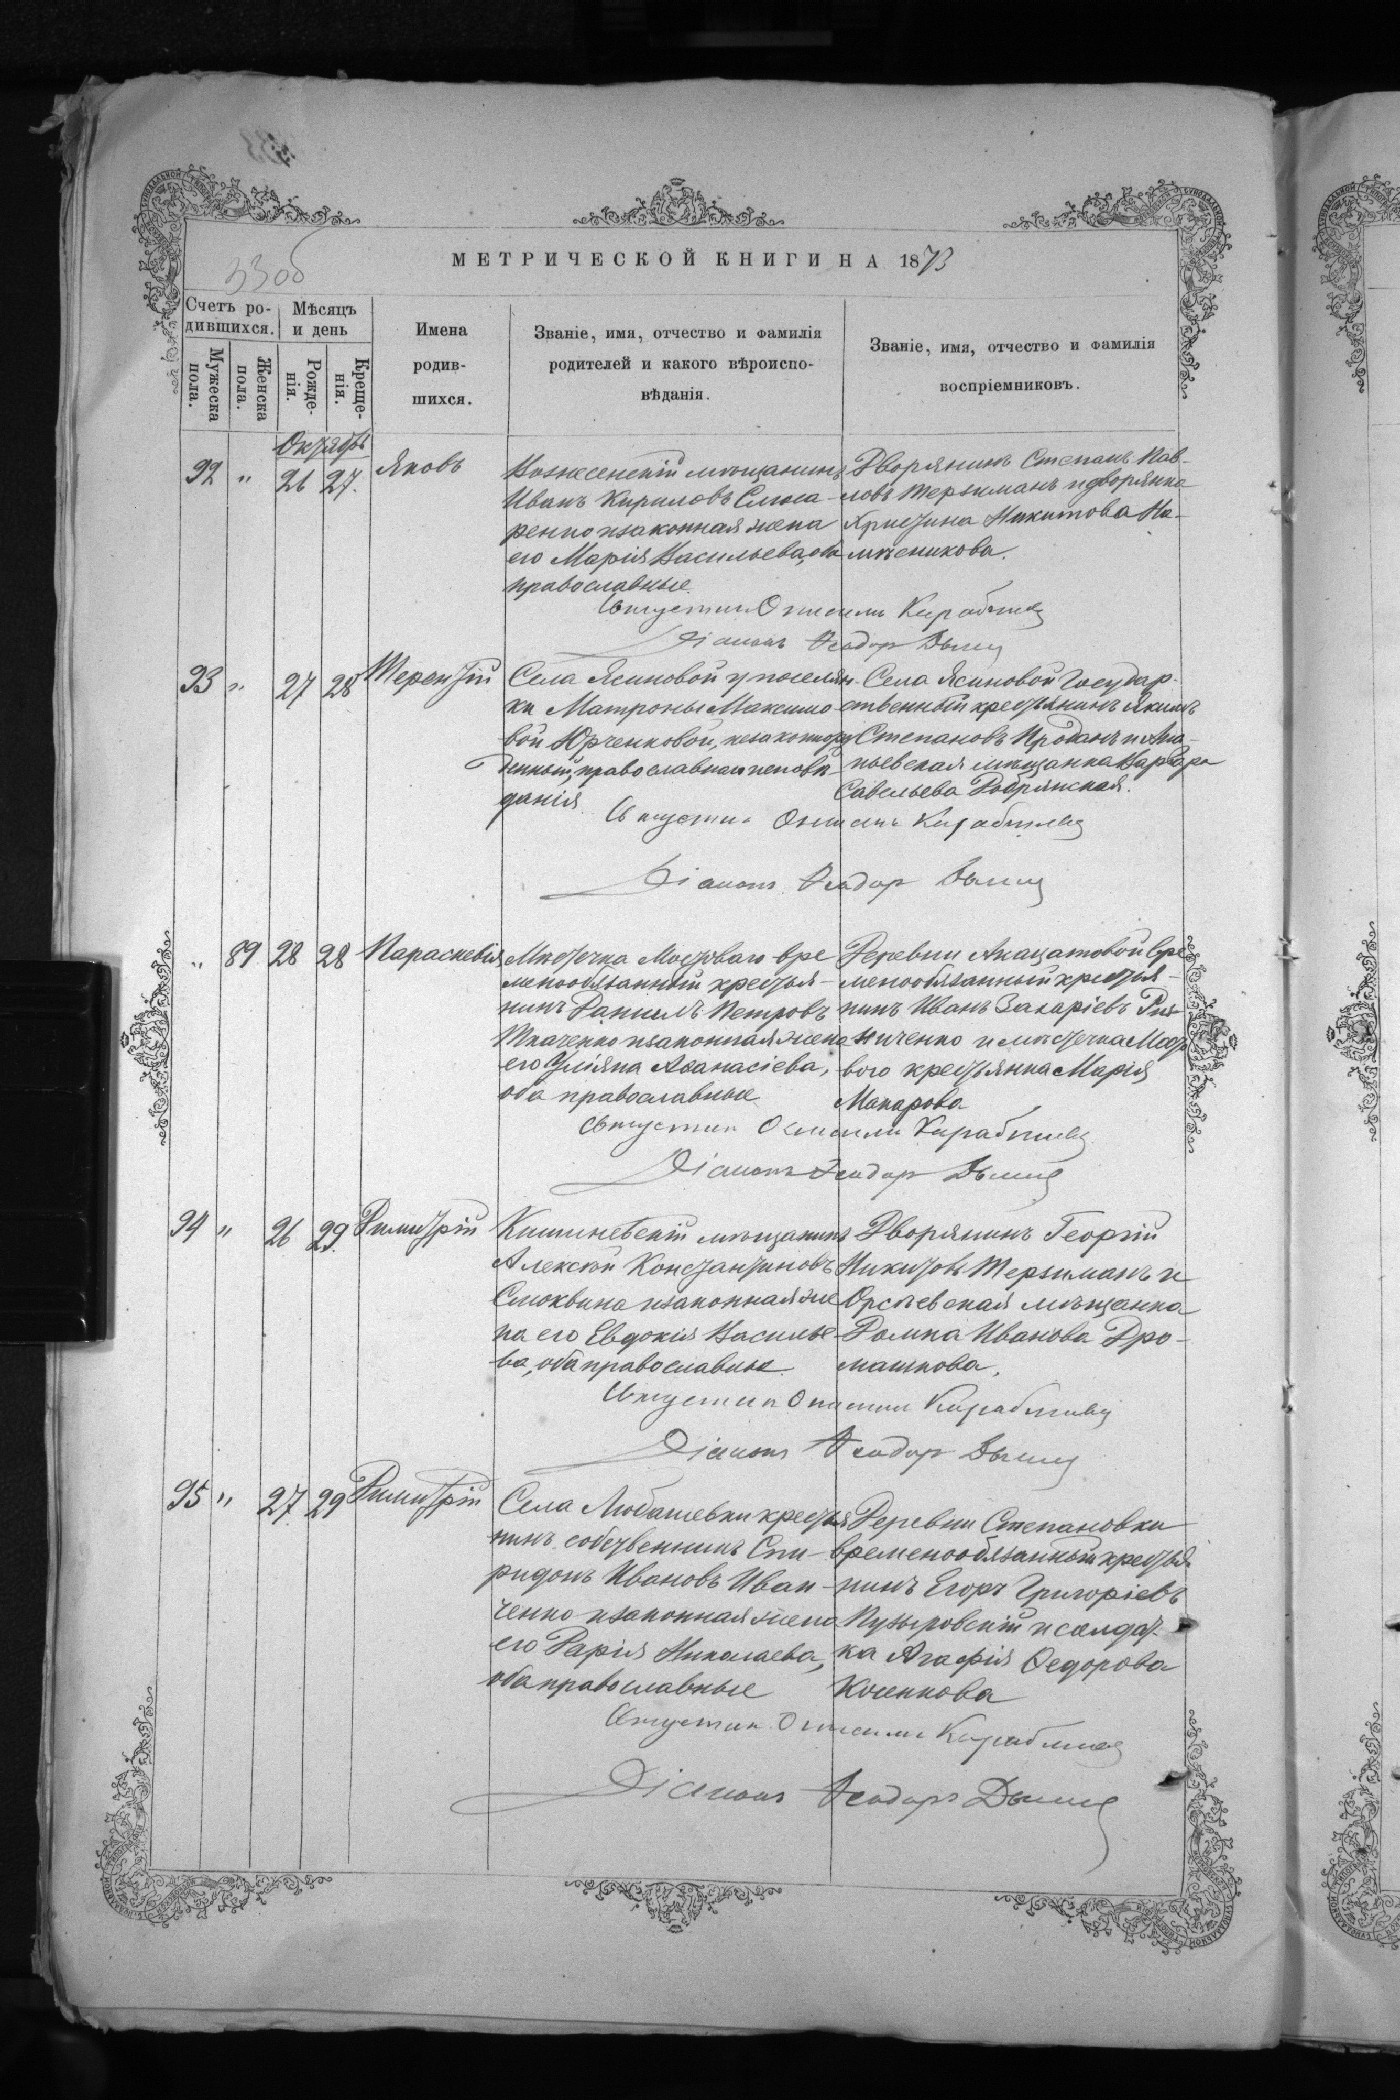 33об
МЕТРИЧЕСКОЙ КНИГИ НА 1873
Счетъ ро-
дившихся.
Мѣсяцъ
и день
Мужеска
пола.
Женска
пола.
Рожде-
нія.
Креще-
нія.
Имена
родив-
шихся.
Званіе, имя, отчество и фамилія
родителей и какого вѣроиспо-
вѣданія.
Званіе, имя, отчество и фамилія
воспріемниковъ.
Октябрь
92 " 26 27. Яковъ
Вознесенскій мѣщанинъ
Иванъ Кириловъ Слюса-
ренко и законная жена
его Марія Васильева, оба
православные.
Дворянинъ Степанъ Пав-
ловъ Терзиманъ и дворянка
Христина Никитова
Діаконъ Ѳеодоръ
93 " 27 28 Терентій
Села Ясиновой у поселян-
ки Матроны Максимо-
вой Юрченковой, незаконорож
денный, православнаго исповѣ-
данія
Села Ясиновой Государ-
ственный крестьянинъ Якимъ
Степановъ Проданъ и Ана-
ньевская мѣщанка Варвара
Савельева Добрянская.
Діаконъ Ѳеодоръ
" 89 28 28 Параскевія
Мѣстечка Мостоваго вре
менообязанный крестья-
нинъ Даніилъ Петровъ
Ткаченко и законная жена
его Уліяна Аѳанасіева,
оба православные
Деревни Акацатовой вре
менообязанный крестья-
нинъ Иванъ Захаріевъ
ниченко и мѣстечка Мост
вого крестьянка Марія
Макарова
Діаконъ Ѳеодоръ
94 " 26 29. Димитрій
Кишиневскій мѣщанинъ
Алексѣй Константиновъ
Смоквина и законная же
на его Евдокія Василье-
ва, оба православные.
Дворянинъ Георгій
Никитовъ Терзиманъ и
мѣщанка
Домна Иванова Дро-
машкова.
Діаконъ Ѳеодоръ
95 " 27 29 Димитрій
Села Любашевки крестья
нинъ собственникъ Спи-
ридонъ Ивановъ Иван-
ченко и законная жена
его Дарія Николаева,
оба православные
Деревни Степановки
временообязанный крестья
нинъ Егоръ Григоріевъ
Пузыровскій и солдат-
ка Агафія Ѳедорова
Косенкова
Діаконъ Ѳеодоръ